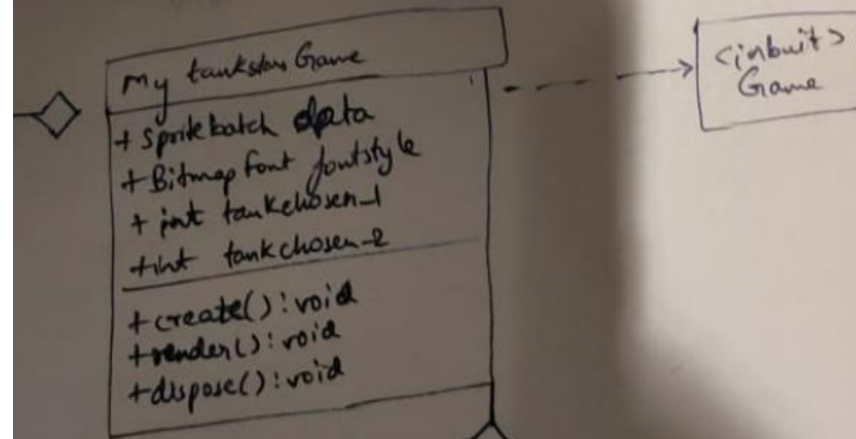 My tankstar Game
+ Spritebatch data
+ Bitmap font fontstyle
+ int tankchosen_1
+int tankchosen_2
+create(): void
+render(): void
+dispose(): void
<inbuit>
Game